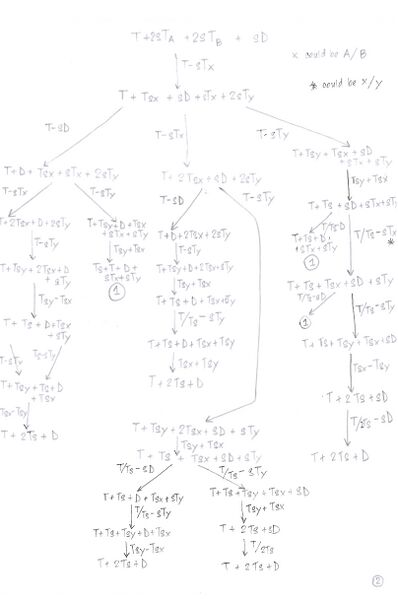 T + 2STA + 2STB + SD
x could be A/B
* could be x/y
T-STx
T + TSx + SD + STx + 2STy
T-SD
T-STx
T-STy
T + D + TSx + STx + 2STy
T + 2TSx + SD + 2STy
T + TSy + TSx + SD
+ STx + STy
T-STx
T-STy
T-SD
T-STy
TSy + TSx
T + 2TSx + D + 2STy
T + TSy + D + TSx
+ STx + STy
T + D + 2TSx + 2STy
T + TS + SD + STx + STy
T-STy
TSy + TSx
T-STy
T/TS-SD
T/TS-STx
*
T + TSy + 2TSx + D
+ STy
TS + T + D +
STx + STy
T + TSy + D + 2TSx + STy
T + TS + D +
STx + STy
1
1
TSy-TSx
TSy + TSx
T + TS + TSx + SD + STy
T + TS + D + TSx
+ STy
T + TS + D + TSx + STy
T/TS-SD
T/TS-STy
T/TS-STy
1
T-STy
TS-STy
T + TS + D + TSx + TSy
T + TS + TSy + TSx + SD
T + TSy + TS + D
+ TSx
TSx + TSy
TSx-TSy
TSx-TSy
T + 2TS + D
T + 2TS + SD
T + 2TS + D
T + TSy + 2TSx + SD + STy
T/2TS-SD
TSy + TSx
T + TS + TSx + SD + STy
T + 2TS + D
T/TS-SD
T/TS-STy
T + TS + D + TSx + STy
T + TS + TSy + TSx + SD
T/TS-STy
TSy + TSx
T + TS + TSy + D + TSx
T + 2TS + SD
TSy-TSx
T/2TS
T + 2TS + D
T + 2TS + D
2